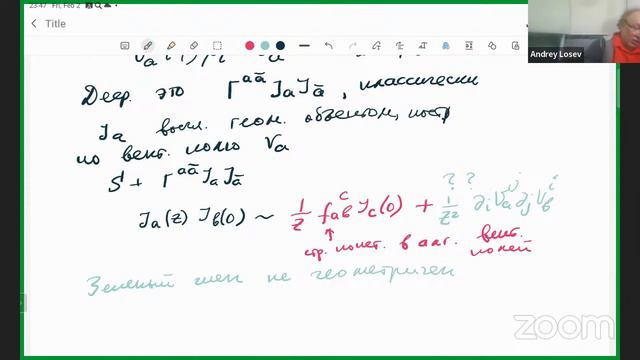 23:47 Fri, Feb 2
Title
Andrey Losev
Деф. это Γ^{aā} J_a J_ā, классически
J_a геом. объектом,
по вект. полю V_a
S + Γ^{aā} J_a J_ā
J_a(z) J_b(0) ~ 1/z f_{ab}^c J_c(0) + 1/z² ∂_i V_a^j ∂_j V_b^i
? ?
в алг. вект. полей
Зеленый член не геометричен
zoom